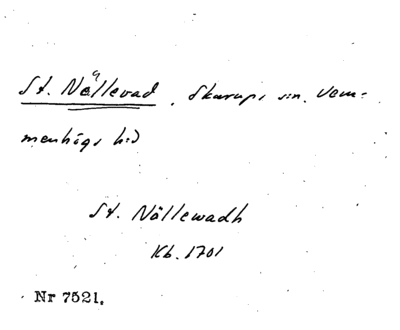 St. Nållevad, Skurups sn, Vem-
menhögs hd
St. Nållewadh
Kb. 1701
Nr 7521.